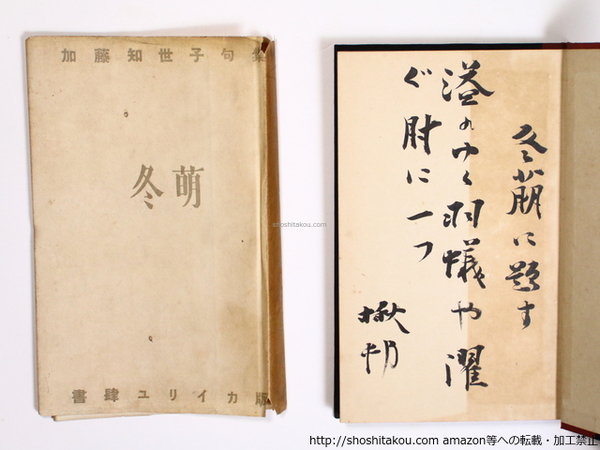 加藤知世子句集
冬萌
書肆ユリイカ版
冬萌に題す
溢れゆく羽蟻や濯
ぐ肘に一つ
楸邨
shoshitakou.com
http://shoshitakou.com amazon等への転載・加工禁止